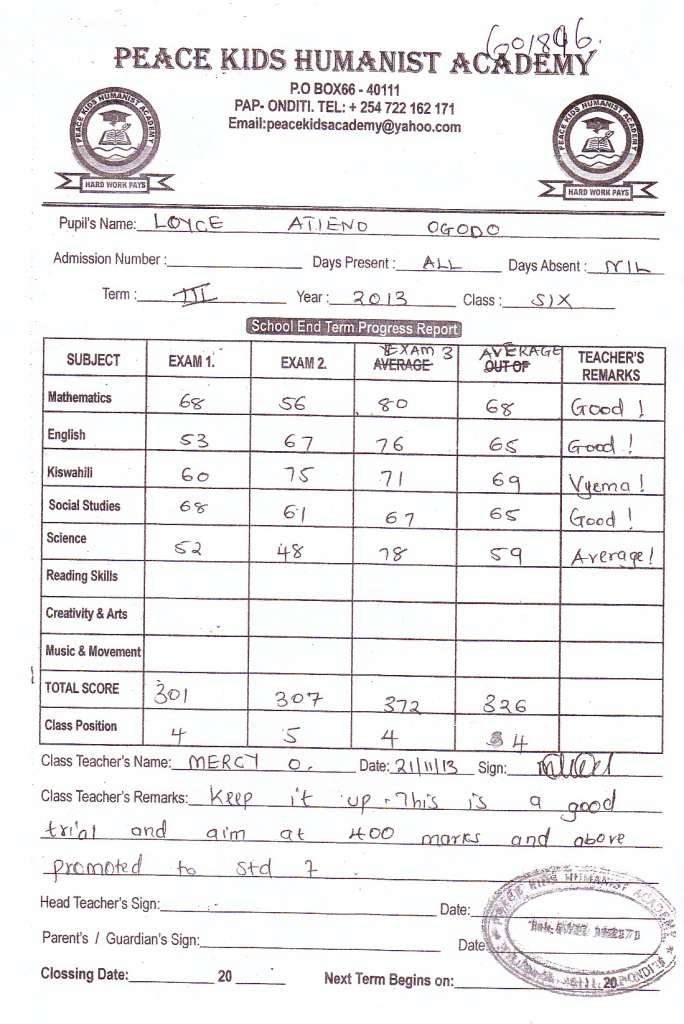 601896.
PEACE KIDS HUMANIST ACADEMY
P.O BOX66 - 40111
PAP- ONDITI. TEL: + 254 722 162 171
Email:peacekidsacademy@yahoo.com
PEACE KIDS HUMANIST ACADEMY
HARD WORK PAYS
PEACE KIDS HUMANIST ACADEMY
HARD WORK PAYS
Pupil's Name: LOYCE ATIENO OGODO
Admission Number : Days Present : ALL Days Absent : NIL
Term : III Year : 2013 Class : SIX
School End Term Progress Report
SUBJECT EXAM 1. EXAM 2. EXAM 3 AVERAGE AVERAGE OUT OF TEACHER'S REMARKS
Mathematics 68 56 80 68 Good !
English 53 67 76 65 Good !
Kiswahili 60 75 71 69 Vyema !
Social Studies 68 61 67 65 Good !
Science 52 48 78 59 Average!
Reading Skills
Creativity & Arts
Music & Movement
TOTAL SCORE 301 307 372 326
Class Position 4 5 4 4
Class Teacher's Name: MERCY O. Date: 21/11/13 Sign:
Class Teacher's Remarks: Keep it up. This is a good
trial and aim at 400 marks and above
promoted to std 7.
Head Teacher's Sign: Date:
Parent's / Guardian's Sign: Date
Clossing Date: 20 Next Term Begins on: 20
PEACE KIDS HUMANIST ACADEMY